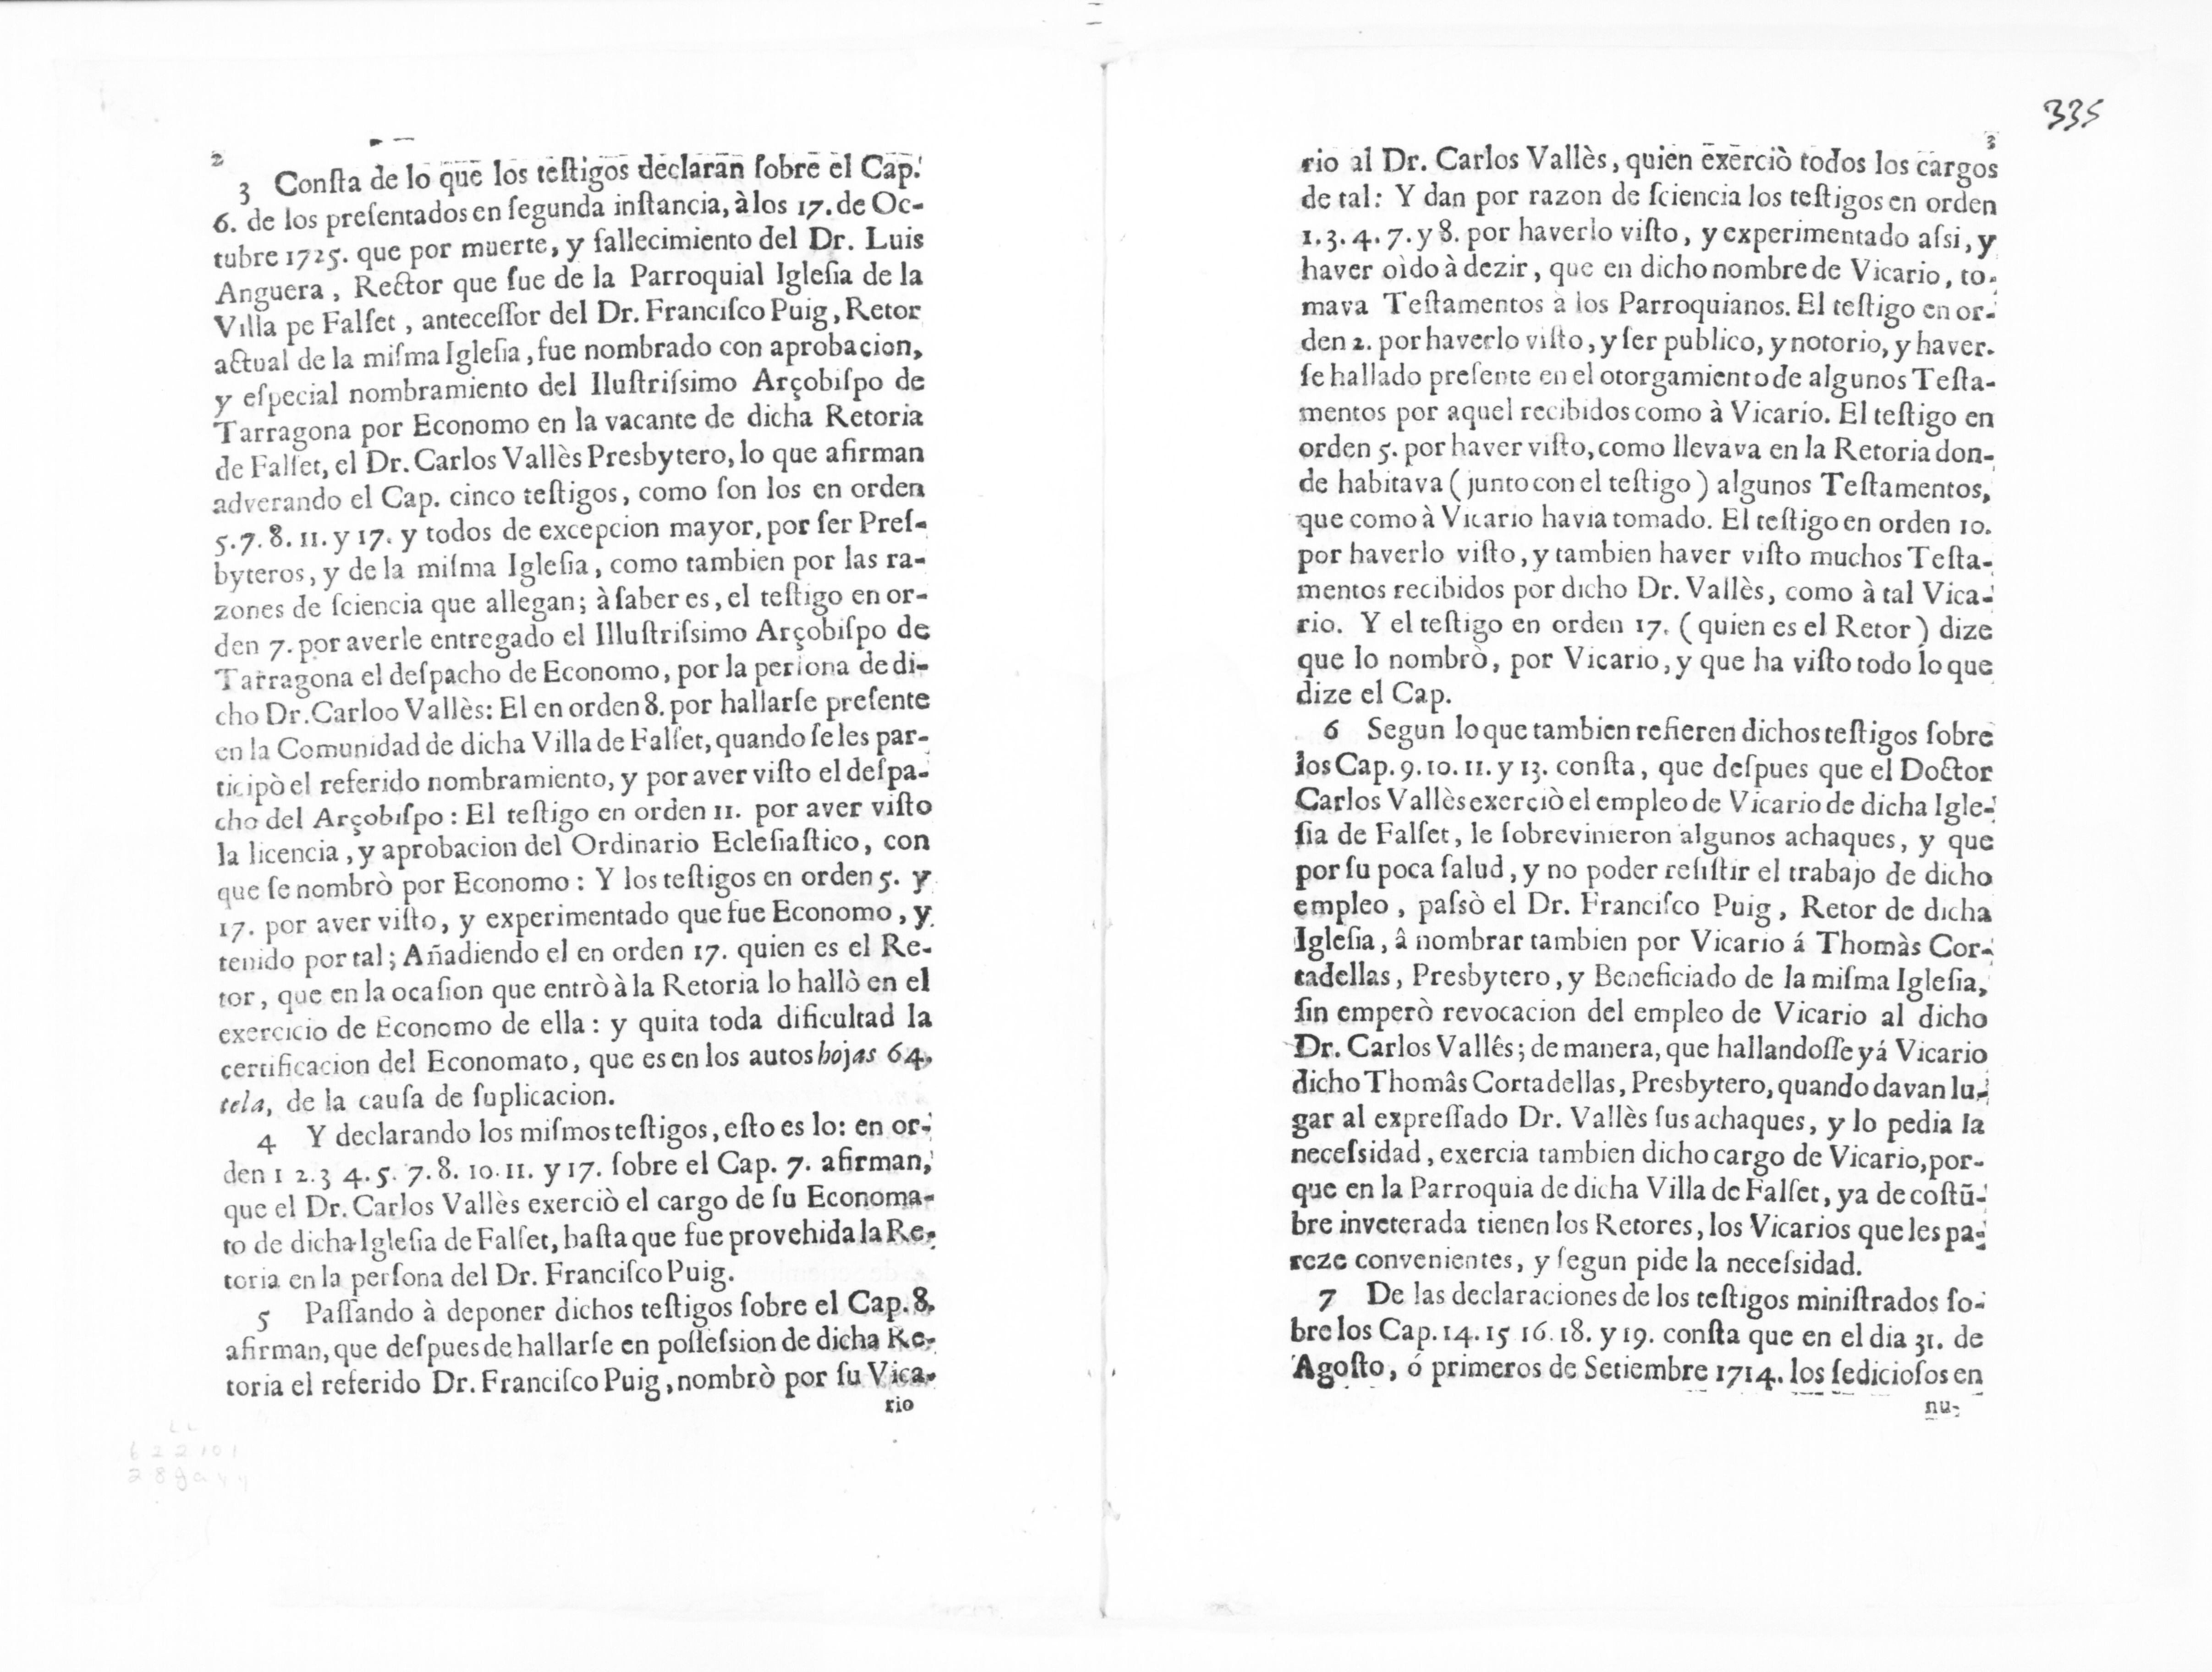 2
3 Conſta de lo que los teſtigos declaran ſobre el Cap.
6. de los preſentados en ſegunda inſtancia, à los 17. de Oc-
tubre 1725. que por muerte, y fallecimiento del Dr. Luis
Anguera, Rector que fue de la Parroquial Igleſia de la
Villa pe Falſet, anteceſſor del Dr. Franciſco Puig, Retor
actual de la miſma Igleſia, fue nombrado con aprobacion,
y eſpecial nombramiento del Iluſtriſsimo Arçobiſpo de
Tarragona por Economo en la vacante de dicha Retoria
de Falſet, el Dr. Carlos Vallès Presbytero, lo que afirman
adverando el Cap. cinco teſtigos, como ſon los en orden
5. 7. 8. 11. y 17. y todos de excepcion mayor, por ſer Preſ-
byteros, y de la miſma Igleſia, como tambien por las ra-
zones de ſciencia que allegan; à ſaber es, el teſtigo en or-
den 7. por averle entregado el Illuſtriſsimo Arçobiſpo de
Tarragona el deſpacho de Economo, por la perſona de di-
cho Dr. Carloo Vallès: El en orden 8. por hallarſe preſente
en la Comunidad de dicha Villa de Falſet, quando ſe les par-
ticipò el referido nombramiento, y por aver viſto el deſpa-
cho del Arçobiſpo: El teſtigo en orden 11. por aver viſto
la licencia, y aprobacion del Ordinario Ecleſiaſtico, con
que ſe nombrò por Economo: Y los teſtigos en orden 5. y
17. por aver viſto, y experimentado que fue Economo, y
tenido por tal; Añadiendo el en orden 17. quien es el Re-
tor, que en la ocaſion que entrò à la Retoria lo hallò en el
exercicio de Economo de ella: y quita toda dificultad la
certificacion del Economato, que es en los autos hojas 64,
tela, de la cauſa de ſuplicacion.
4 Y declarando los miſmos teſtigos, eſto es lo: en or-
den 1 2. 3 4. 5. 7. 8. 10. 11. y 17. ſobre el Cap. 7. afirman,
que el Dr. Carlos Vallès exerciò el cargo de ſu Economa-
to de dicha Igleſia de Falſet, haſta que fue provehida la Re-
toria en la perſona del Dr. Franciſco Puig.
5 Paſſando à deponer dichos teſtigos ſobre el Cap. 8.
afirman, que deſpues de hallarſe en poſſeſsion de dicha Re-
toria el referido Dr. Franciſco Puig, nombrò por ſu Vica-
rio
335
3
rio al Dr. Carlos Vallès, quien exerciò todos los cargos
de tal: Y dan por razon de ſciencia los teſtigos en orden
1. 3. 4. 7. y 8. por haverlo viſto, y experimentado aſsi, y
haver oìdo à dezir, que en dicho nombre de Vicario, to-
mava Teſtamentos à los Parroquianos. El teſtigo en or-
den 2. por haverlo viſto, y ſer publico, y notorio, y haver-
ſe hallado preſente en el otorgamiento de algunos Teſta-
mentos por aquel recibidos como à Vicario. El teſtigo en
orden 5. por haver viſto, como llevava en la Retoria don-
de habitava ( junto con el teſtigo ) algunos Teſtamentos,
que como à Vicario havia tomado. El teſtigo en orden 10.
por haverlo viſto, y tambien haver viſto muchos Teſta-
mentos recibidos por dicho Dr. Vallès, como à tal Vica-
rio. Y el teſtigo en orden 17. ( quien es el Retor ) dize
que lo nombrò, por Vicario, y que ha viſto todo lo que
dize el Cap.
6 Segun lo que tambien refieren dichos teſtigos ſobre
los Cap. 9. 10. 11. y 13. conſta, que deſpues que el Doctor
Carlos Vallès exerciò el empleo de Vicario de dicha Igle-
ſia de Falſet, le ſobrevinieron algunos achaques, y que
por ſu poca ſalud, y no poder reſiſtir el trabajo de dicho
empleo, paſsò el Dr. Franciſco Puig, Retor de dicha
Igleſia, â nombrar tambien por Vicario á Thomàs Cor-
tadellas, Presbytero, y Beneficiado de la miſma Igleſia,
ſin emperò revocacion del empleo de Vicario al dicho
Dr. Carlos Vallês; de manera, que hallandoſſe yá Vicario
dicho Thomâs Cortadellas, Presbytero, quando davan lu-
gar al expreſſado Dr. Vallès ſus achaques, y lo pedia la
neceſsidad, exercia tambien dicho cargo de Vicario, por-
que en la Parroquia de dicha Villa de Falſet, ya de coſtũ-
bre inveterada tienen los Retores, los Vicarios que les pa-
reze convenientes, y ſegun pide la neceſsidad.
7 De las declaraciones de los teſtigos miniſtrados ſo-
bre los Cap. 14. 15 16. 18. y 19. conſta que en el dia 31. de
Agoſto, ó primeros de Setiembre 1714. los ſedicioſos en
nu-